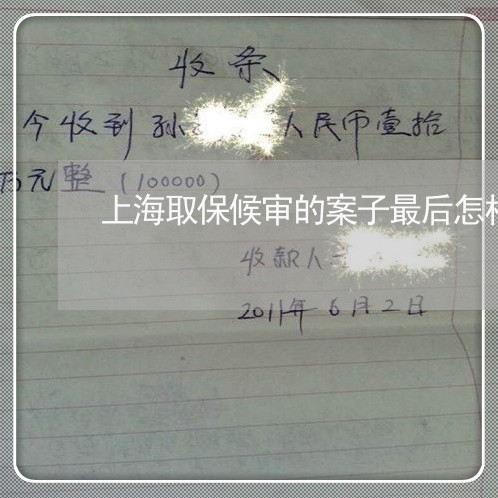 收条
今收到孙 人民币壹拾
万元整(100000)
上海取保候审的案子最后怎
收款人
2011年6月2日